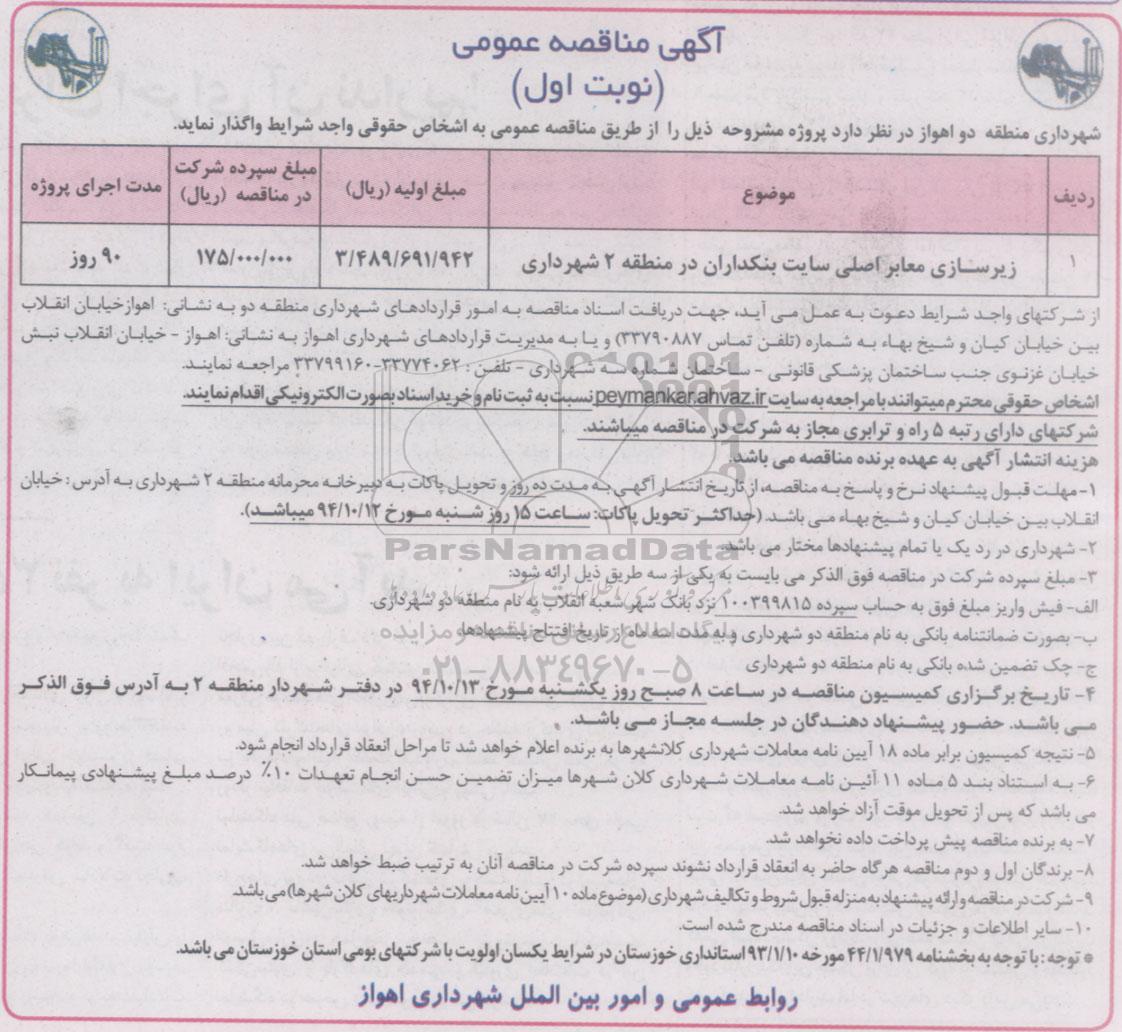 آگهی مناقصه عمومی
(نوبت اول)
شهرداری منطقه دو اهواز در نظر دارد پروژه مشروحه ذیل را از طریق مناقصه عمومی به اشخاص حقوقی واجد شرایط واگذار نماید.
ردیف موضوع مبلغ اولیه (ریال) مبلغ سپرده شرکت در مناقصه (ریال) مدت اجرای پروژه
۱ زیرسازی معابر اصلی سایت بنکداران در منطقه ۲ شهرداری ۳/۴۸۹/۶۹۱/۹۴۲ ۱۷۵/۰۰۰/۰۰۰ ۹۰ روز
از شرکتهای واجد شرایط دعوت به عمل می آید، جهت دریافت اسناد مناقصه به امور قراردادهای شهرداری منطقه دو به نشانی: اهوازخیابان انقلاب
بین خیابان کیان و شیخ بهاء به شماره (تلفن تماس ۳۳۷۹۰۸۸۷) و یا به مدیریت قراردادهای شهرداری اهواز به نشانی: اهواز - خیابان انقلاب نبش
خیابان غزنوی جنب ساختمان پزشکی قانونی - ساختمان شماره سه شهرداری - تلفن : ۳۳۷۷۴۰۶۲-۳۳۷۹۹۱۶۰ مراجعه نمایند.
اشخاص حقوقی محترم میتوانند با مراجعه به سایت peymankar.ahvaz.ir نسبت به ثبت نام و خرید اسناد بصورت الکترونیکی اقدام نمایند.
شرکتهای دارای رتبه ۵ راه و ترابری مجاز به شرکت در مناقصه میباشند.
هزینه انتشار آگهی به عهده برنده مناقصه می باشد.
۱- مهلت قبول پیشنهاد نرخ و پاسخ به مناقصه، از تاریخ انتشار آگهی به مدت ده روز و تحویل پاکات به دبیرخانه محرمانه منطقه ۲ شهرداری به آدرس: خیابان
انقلاب بین خیابان کیان و شیخ بهاء می باشد. (حداکثر تحویل پاکات: ساعت ۱۵ روز شنبه مورخ ۹۴/۱۰/۱۲ میباشد).
۲- شهرداری در رد یک یا تمام پیشنهادها مختار می باشد.
ParsNamadData
۳- مبلغ سپرده شرکت در مناقصه فوق الذکر می بایست به یکی از سه طریق ذیل ارائه شود:
الف- فیش واریز مبلغ فوق به حساب سپرده ۱۰۰۳۹۹۸۱۵ نزد بانک شهر شعبه انقلاب به نام منطقه دو شهرداری.
ب- بصورت ضمانتنامه بانکی به نام منطقه دو شهرداری و به مدت سه ماه از تاریخ افتتاح پیشنهادها
ج- چک تضمین شده بانکی به نام منطقه دو شهرداری
۰۲۱-۸۸۳۴۹۶۷۰-۵
۴- تاریخ برگزاری کمیسیون مناقصه در ساعت ۸ صبح روز یکشنبه مورخ ۹۴/۱۰/۱۳ در دفتر شهردار منطقه ۲ به آدرس فوق الذکر
می باشد. حضور پیشنهاد دهندگان در جلسه مجاز می باشد.
۵- نتیجه کمیسیون برابر ماده ۱۸ آیین نامه معاملات شهرداری کلانشهرها به برنده اعلام خواهد شد تا مراحل انعقاد قرارداد انجام شود.
۶- به استناد بند ۵ ماده ۱۱ آئین نامه معاملات شهرداری کلان شهرها میزان تضمین حسن انجام تعهدات ۱۰٪ درصد مبلغ پیشنهادی پیمانکار
می باشد که پس از تحویل موقت آزاد خواهد شد.
۷- به برنده مناقصه پیش پرداخت داده نخواهد شد.
۸- برندگان اول و دوم مناقصه هرگاه حاضر به انعقاد قرارداد نشوند سپرده شرکت در مناقصه آنان به ترتیب ضبط خواهد شد.
۹- شرکت در مناقصه و ارائه پیشنهاد به منزله قبول شروط و تکالیف شهرداری (موضوع ماده ۱۰ آیین نامه معاملات شهرداریهای کلان شهرها) می باشد.
۱۰- سایر اطلاعات و جزئیات در اسناد مناقصه مندرج شده است.
* توجه: با توجه به بخشنامه ۴۴/۱/۹۷۹ مورخه ۹۳/۱/۱۰ استانداری خوزستان در شرایط یکسان اولویت با شرکتهای بومی استان خوزستان می باشد.
روابط عمومی و امور بین الملل شهرداری اهواز